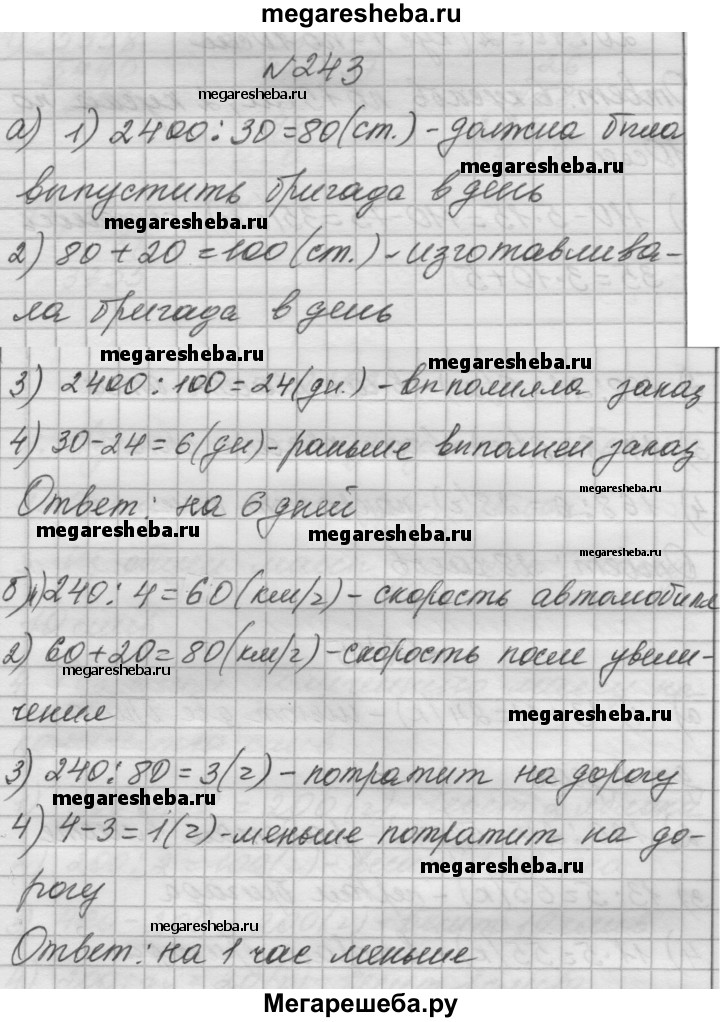 megaresheba.ru
№243
megaresheba.ru
а) 1) 2400:30=80(ст.)-должна была
megaresheba.ru
выпустить бригада в день
megaresheba.ru
2) 80+20=100(ст.)-изготавлива-
ла бригада в день
megaresheba.ru
megaresheba.ru
3) 2400:100=24(дн.)-выполняла заказ
4) 30-24=6(дн)-раньше выполнен заказ
megaresheba.ru
Ответ: на 6 дней
megaresheba.ru
megaresheba.ru
б)1)240:4=60(км/ч)-скорость автомобиля
2) 60+20=80(км/ч)-скорость после увели-
megaresheba.ru
чения
megaresheba.ru
3) 240:80=3(ч)-потратит на дорогу
megaresheba.ru
4) 4-3=1(ч)-меньше потратит на до-
megaresheba.ru
рогу
megaresheba.ru
Ответ: на 1 час меньше
Мегарешеба.ру